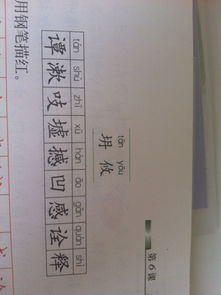 第6课
tān yōu
坍 攸
tán shù zhī xū hàn āo gǎn quán shì
谭 漱 吱 墟 撼 凹 感 诠 释
用钢笔描红。